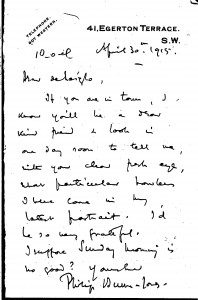 TELEPHONE.
607 WESTERN.
41, EGERTON TERRACE.
S.W.
April 30th 1915.
Dear
If you are in town, I
know you'll be a dear
kind friend & look in
one day soon to tell me,
with your clear eye,
what particular
I have come in my
latest portrait. I'd
be so very grateful.
I suppose Sunday morning is
no good? Yours
Philip